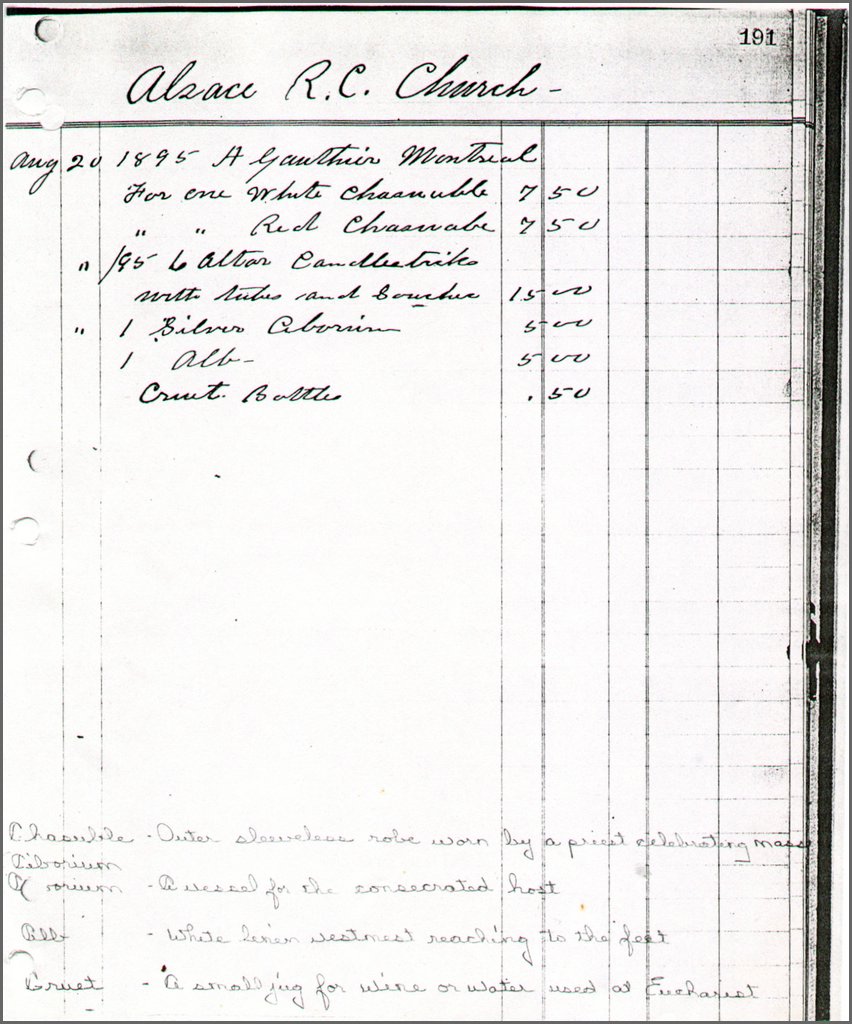 191
Alsace R.C. Church -
Aug 20 1895 A Gauthier Montreal
For one White Chasuable 7 50
" " Red Chasuabe 7 50
" /95 6 Altar Candlestiks
with tubes and 15 00
" 1 Silver Ciborium 5 00
1 Alb - 5 00
Cruet Bottles . 50
Chasuble - Outer sleeveless robe worn by a priest celebrating mass
Ciborium
orium - A vessel for the consecrated host
Alb - White linen vestment reaching to the feet
Cruet - A small jug for wine or water used at Eucharist